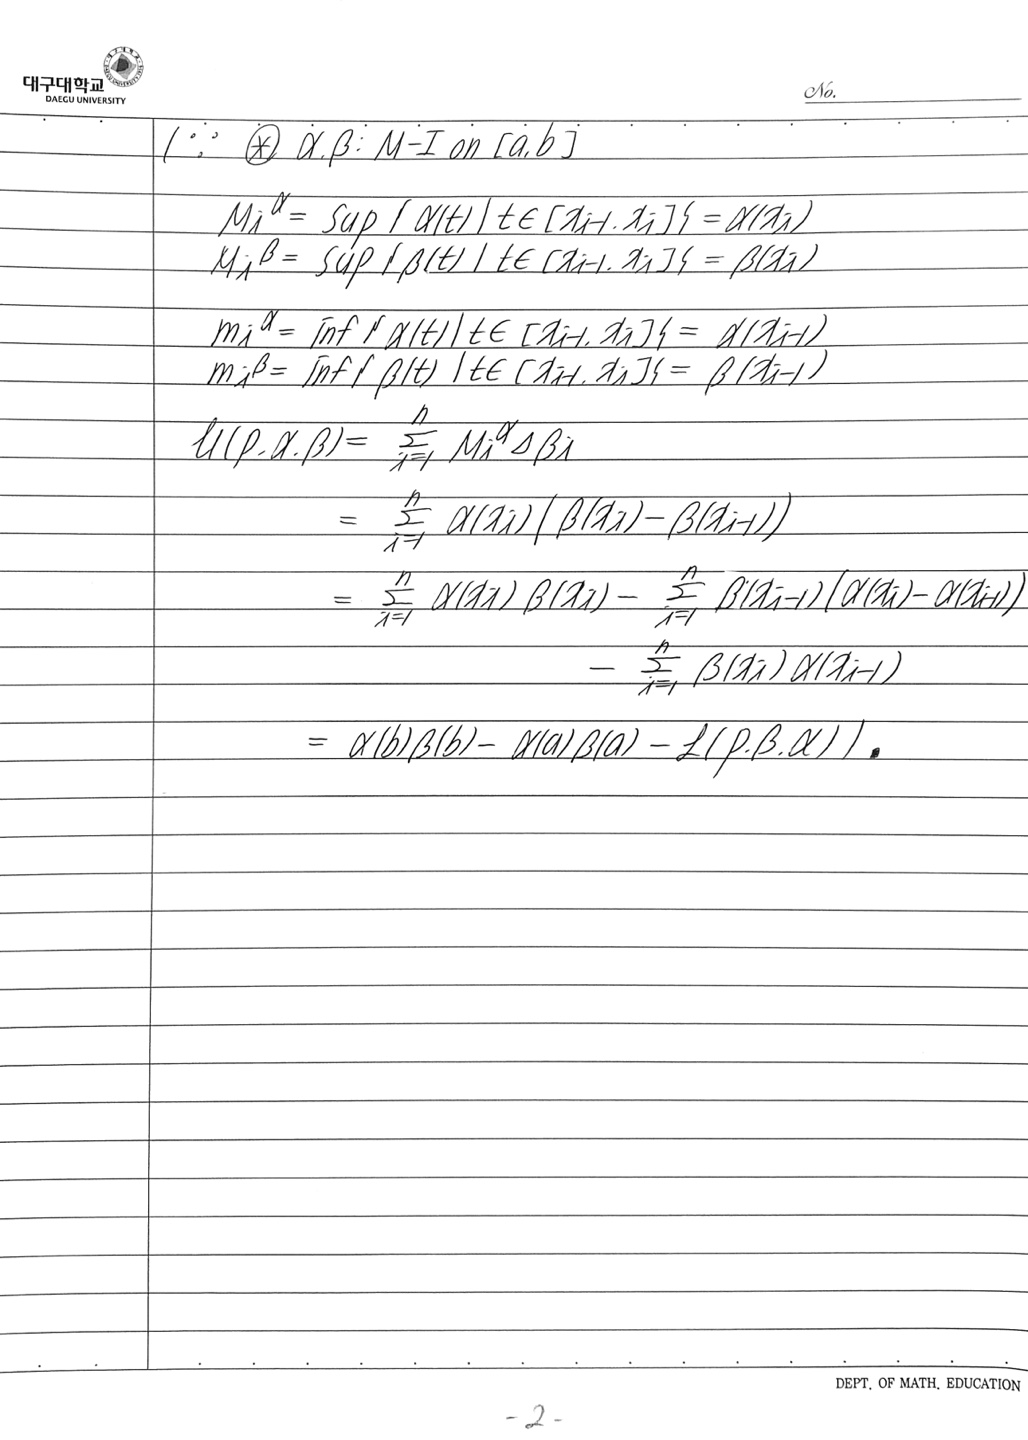 대구대학교
DAEGU UNIVERSITY
No.
(∵ ⊛ α.β: M-I on [a,b]
Mᵢ^α = sup{α(t) | t∈[xᵢ₋₁, xᵢ]} = α(xᵢ)
Mᵢ^β = sup{β(t) | t∈[xᵢ₋₁, xᵢ]} = β(xᵢ)
mᵢ^α = inf{α(t) | t∈[xᵢ₋₁, xᵢ]} = α(xᵢ₋₁)
mᵢ^β = inf{β(t) | t∈[xᵢ₋₁, xᵢ]} = β(xᵢ₋₁)
U(P.α.β) = Σ_{i=1}^{n} Mᵢ^α Δβᵢ
= Σ_{i=1}^{n} α(xᵢ)(β(xᵢ) - β(xᵢ₋₁))
= Σ_{i=1}^{n} α(xᵢ)β(xᵢ) - Σ_{i=1}^{n} β(xᵢ₋₁)(α(xᵢ) - α(xᵢ₋₁))
- Σ_{i=1}^{n} β(xᵢ)α(xᵢ₋₁)
= α(b)β(b) - α(a)β(a) - L(P.β.α)).
DEPT. OF MATH. EDUCATION
-2-